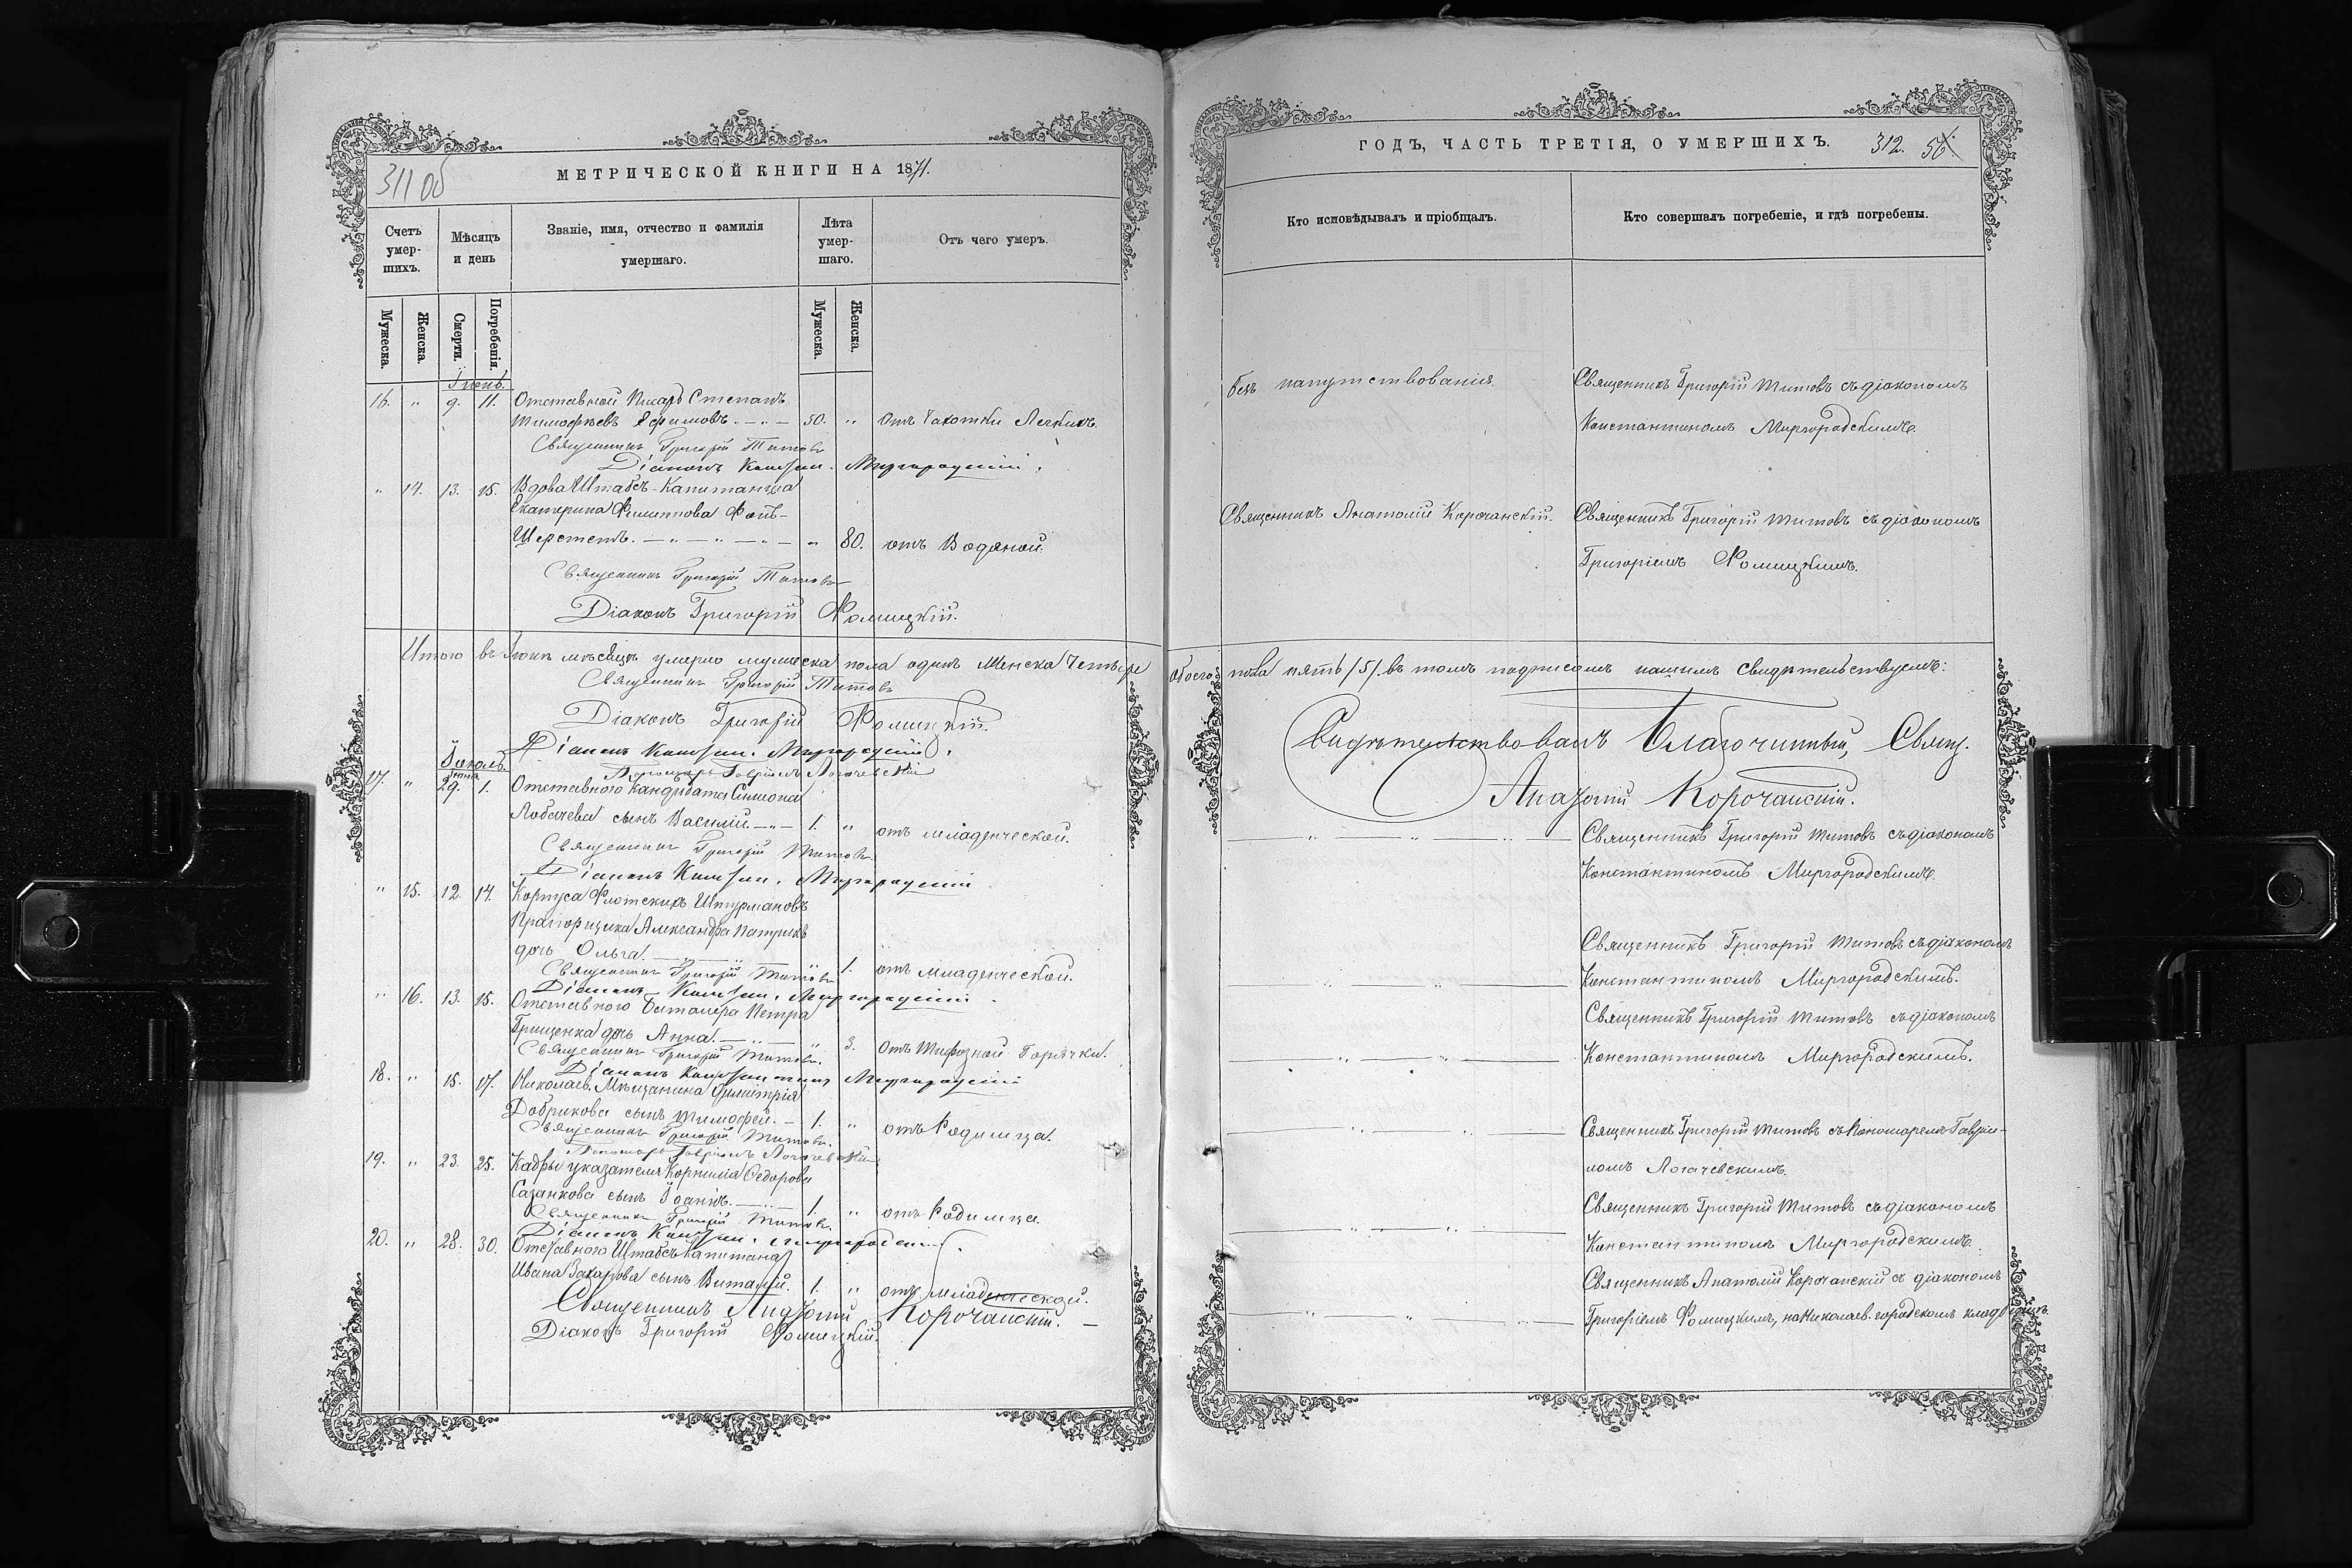 311 об
МЕТРИЧЕСКОЙ КНИГИ НА 1871.
Счетъ умер-шихъ.
Мѣсяцъ и день
Званіе, имя, отчество и фамилія умершаго.
Лѣта умер-шаго.
Отъ чего умеръ.
Мужеска.
Женска.
Смерти.
Погребенія.
Мужеска.
Женска.
Іюнь.
16. " 9. 11. Отставной Писарь Степанъ
Тимофеевъ Ефимовъ. — " — 50. " Отъ Чахотки Легкихъ.
Священникъ Григорій Титовъ
Діаконъ Констан. Миргородскій.
" 14. 13. 15. Вдова Штабсъ-Капитанша
Екатерина Филиппова Фонъ-
Шерстетъ. — " — " — " — " 80. отъ Водяной.
Священникъ Григорій Титовъ
Діаконъ Григорій Фомицкій.
Итого въ Іюнѣ мѣсяцѣ умерло мужеска пола одинъ Женска Четыре
Священникъ Григорій Титовъ
Діаконъ Григорій Фомицкій.
Діаконъ Констан. Миргородскій.
Пономарь Гавріилъ Логачевскій
Іюль.
Іюня
17. " 29. 1. Отставного Кандидата Симиона
Лобачева сынъ Василій. — " — 1. " отъ младенческой.
Священникъ Григорій Титовъ.
Діаконъ Констан. Миргородскій
" 15. 12. 14. Корпуса Флотскихъ Штурмановъ
Прапорщика Александра Патрикѣ
дочь Ольга. — " — " 1. отъ младенческой.
Священникъ Григорій Титовъ
Діаконъ Констан. Миргородскій.
" 16. 13. 15. Отставного Баталера Петра
Грищенка дочь Анна. — " — " 3. отъ Тифозной Горячки.
Священникъ Григорій Титовъ.
Діаконъ Константинъ Миргородскій
18. " 15. 17. Николаев. Мѣщанина Димитрія
Добрикова сынъ Тимофей. — 1. " отъ Родимца.
Священникъ Григорій Титовъ.
Пономарь Гавріилъ Логачевскій
19. " 23. 25. Кадры указателя Корнилія Федорова
Сазанкова сынъ Іоаннъ. — " — 1. " отъ Родимца.
Священникъ Григорій Титовъ.
Діаконъ Констан. Миргородскій.
20. " 28. 30. Отставного Штабсъ Капитана
Ивана Захарова сынъ Виталій. 1. " отъ младенческой.
Священникъ Анатолій Корочанскій. —
Діаконъ Григорій Фомицкій.
ГОДЪ, ЧАСТЬ ТРЕТІЯ, О УМЕРШИХЪ. 312. 56.
Кто исповѣдывалъ и пріобщалъ.
Кто совершалъ погребеніе, и гдѣ погребены.
безъ напутствованія.
Священникъ Григорій Титовъ съ діакономъ
Константиномъ Миргородскимъ.
Священникъ Анатолій Корочанскій.
Священникъ Григорій Титовъ съ діакономъ
Григоріемъ Фомицкимъ.
обоего пола пять /5/. въ томъ подписомъ нашимъ свидѣтельствуемъ:
Свидѣтельствовалъ Благочинный, Свящ.
Анатолій Корочанскій.
Священникъ Григорій Титовъ съ діакономъ
Константиномъ Миргородскимъ.
Священникъ Григорій Титовъ съ діакономъ
Константиномъ Миргородскимъ.
Священникъ Григорій Титовъ съ діакономъ
Константиномъ Миргородскимъ.
Священникъ Григорій Титовъ съ Пономаремъ Гавріи-
ломъ Логачевскимъ.
Священникъ Григорій Титовъ съ діакономъ
Константиномъ Миргородскимъ.
Священникъ Анатолій Корочанскій съ діакономъ
Григоріемъ Фомицкимъ, на Николаев. городскомъ кладбищѣ.